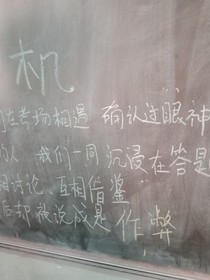 机
们在考场相遇 确认过眼神
的人 我们一同沉浸在答是
相讨论、互相借鉴
后却被说成是 作弊